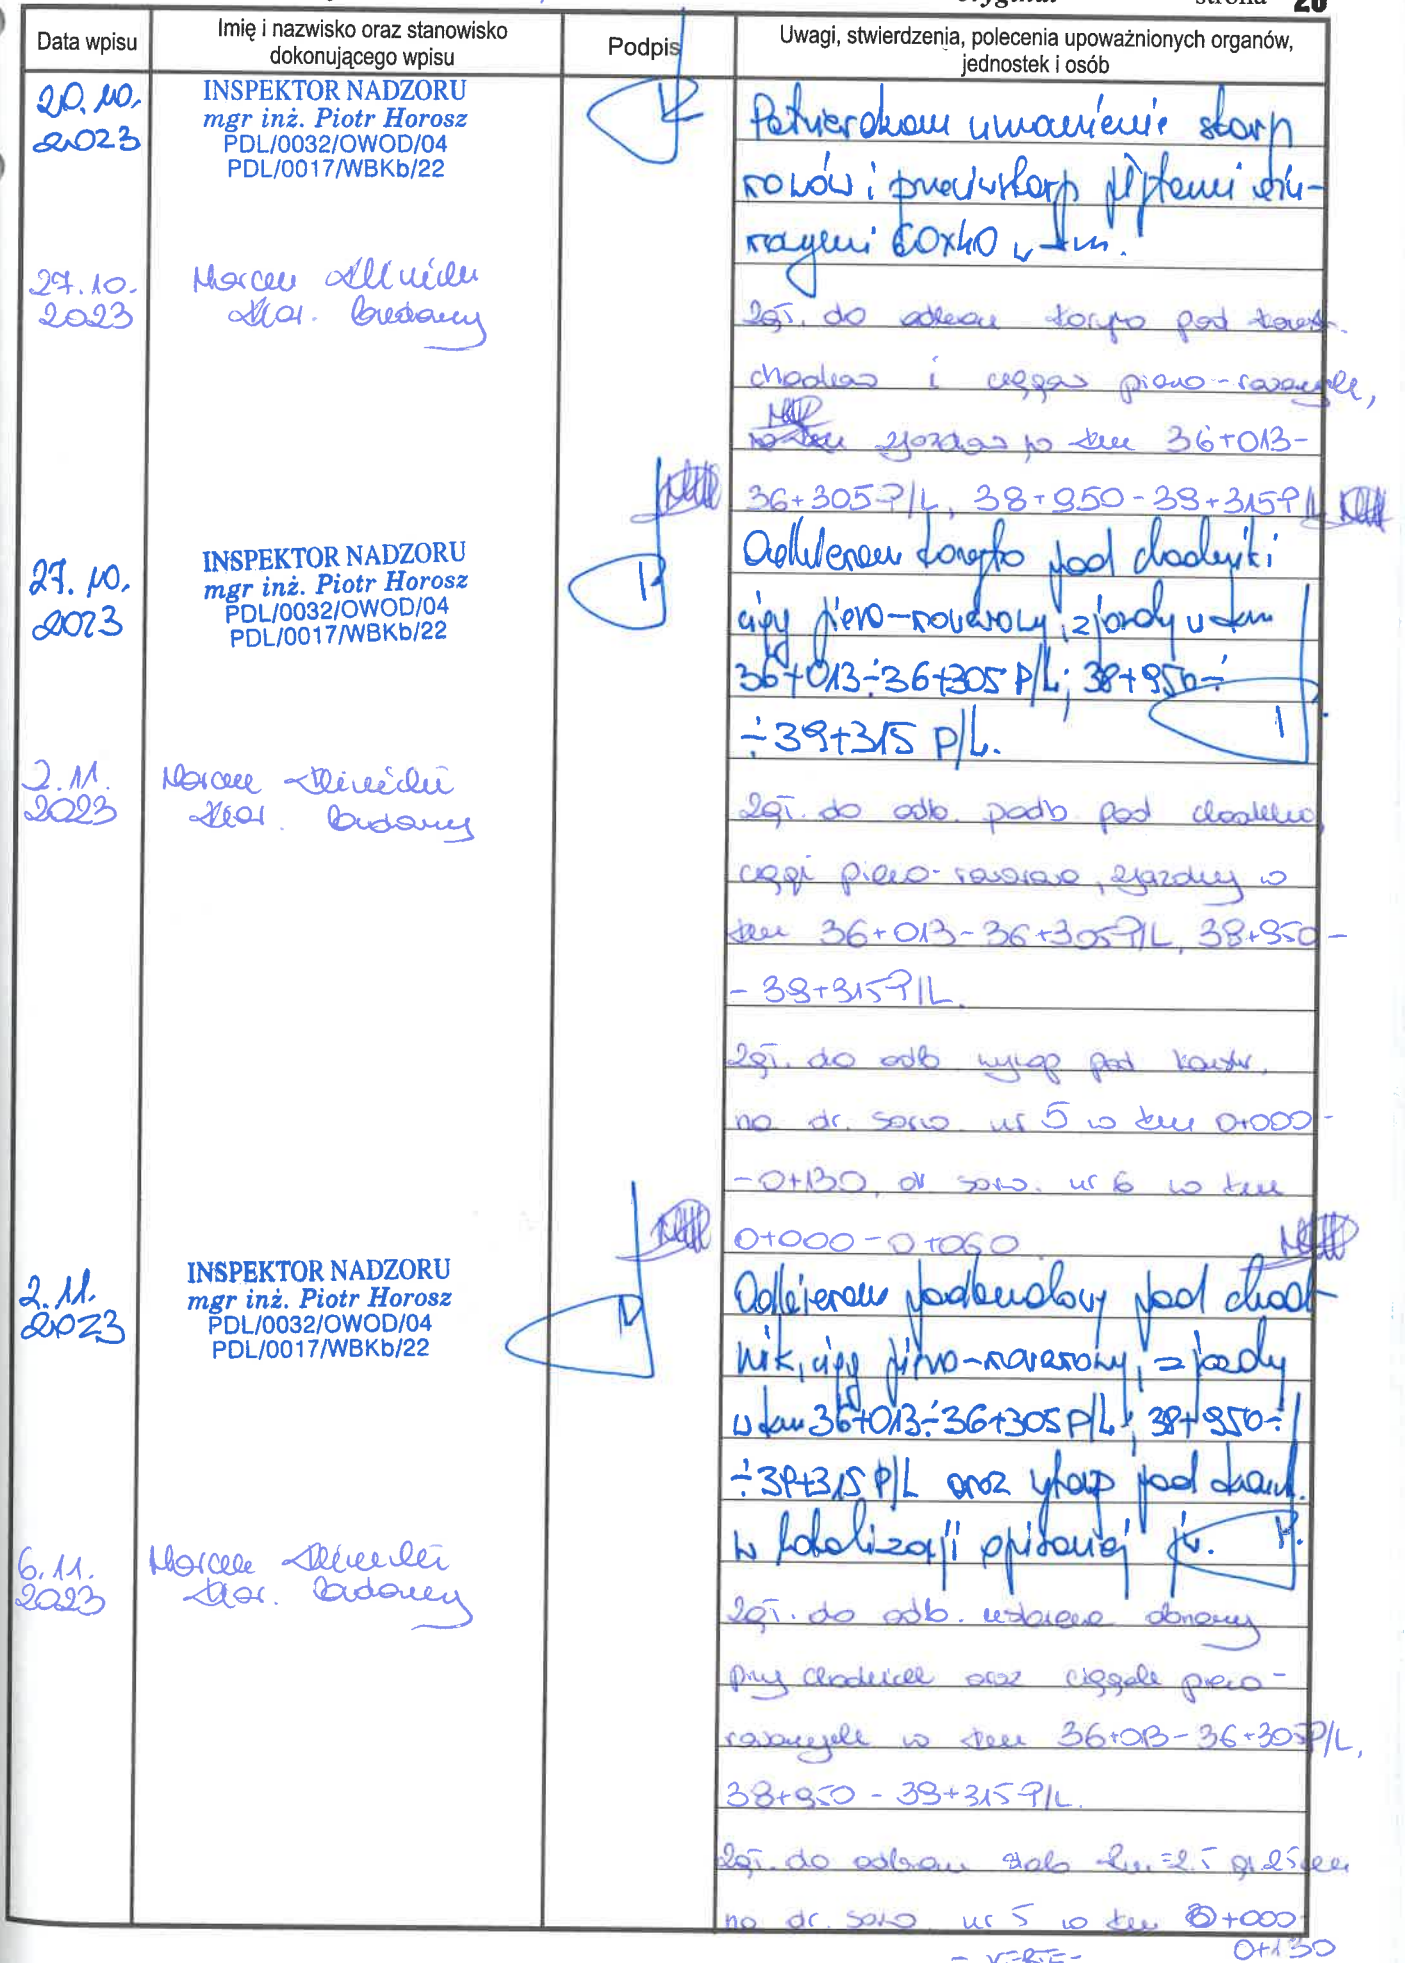 Oryginał strona 20
Data wpisu
Imię i nazwisko oraz stanowisko
dokonującego wpisu
Podpis
Uwagi, stwierdzenia, polecenia upoważnionych organów,
jednostek i osób
20.10.
2023
INSPEKTOR NADZORU
mgr inż. Piotr Horosz
PDL/0032/OWOD/04
PDL/0017/WBKb/22
Potwierdzam umocnienie skarp
rowów i przeciwskarp płytami ażu-
rowymi 60x40 w km.
27.10.
2023
Marcin
Kier. budowy
Zgł. do odbioru koryto pod konstr.
chodników i ciągów pieszo-rowerowych,
zjazdów w km 36+013-
36+305 P/L, 38+950-39+315 P/L
27.10.
2023
INSPEKTOR NADZORU
mgr inż. Piotr Horosz
PDL/0032/OWOD/04
PDL/0017/WBKb/22
Odbieram koryto pod chodniki
ciąg pieszo-rowerowy, zjazdy w km
36+013÷36+305 P/L; 38+950÷
÷39+315 P/L.
2.11.
2023
Marcin
Kier. budowy
Zgł. do odb. podb. pod chodniki,
ciągi pieszo-rowerowe, zjazdy w
km 36+013-36+305 P/L, 38+950-
-39+315 P/L.
Zgł. do odb wykop pod konstr.
na dr. serw. nr 5 w km 0+000-
-0+130, dr serw. nr 6 w km
0+000-0+060
2.11.
2023
INSPEKTOR NADZORU
mgr inż. Piotr Horosz
PDL/0032/OWOD/04
PDL/0017/WBKb/22
Odbieram podbudowy pod chod-
nik, ciąg pieszo-rowerowy, zjazdy
w km 36+013÷36+305 P/L; 38+950÷
÷39+315 P/L oraz wykop pod konstr.
w lokalizacji opisanej jw.
6.11.
2023
Marcin
Kier. budowy
Zgł. do odb. ustawienie
przy chodnikach oraz ciągach pieszo-
rowerowych w km 36+013-36+305 P/L,
38+950-39+315 P/L.
Zgł. do odbioru stab. Rm=2.5 gr. 25cm
na dr. serw. nr 5 w km 0+000-
0+130
- VERTE -